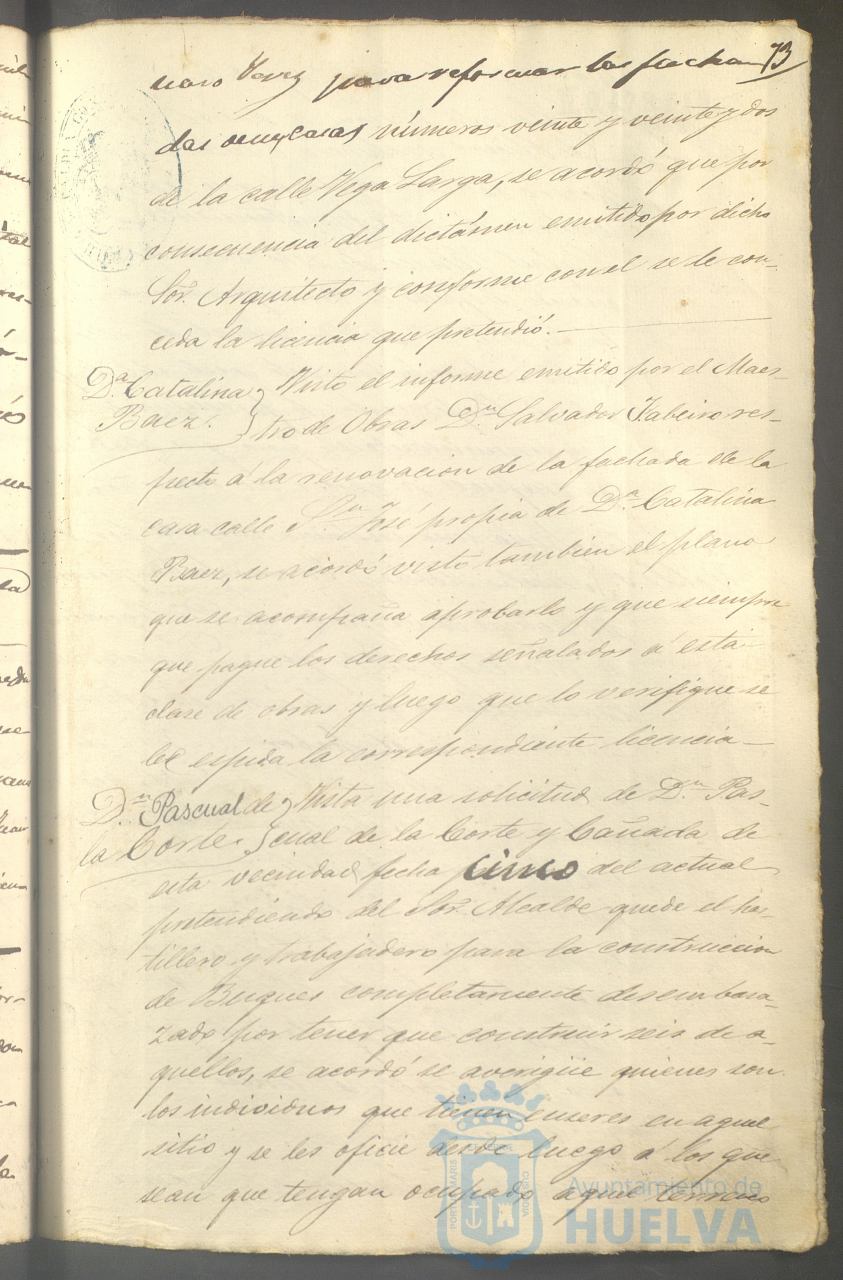 73
naro Perez para reformar las facha
das de sus casas números veinte y veinte y dos
de la calle Vega Larga, se acordó que por
consecuencia del dictámen emitido por dicho
Sor. Arquitecto y conforme con el se le con-
ceda la licencia que pretendió.
Da. Catalina
Baez.
Visto el informe emitido por el Maes-
tro de Obras Dn. Salvador res-
pecto á la renovacion de la fachada de la
casa calle Sn. José propia de Da. Catalina
Baez, se acordó visto tambien el plano
que se acompaña aprobarlo y que siempre
que pague los derechos señalados á esta
clase de obras y luego que lo verifique se
le espida la correspondiente licencia
Dn. Pascual de
la Corte.
Vista una solicitud de Dn. Pas-
cual de la Corte y Cañada de
esta vecindad fecha cinco del actual
pretendiendo del Sor. Alcalde quede el has-
tillero y trabajadero para la construccion
de Buques completamente desembara-
zado por tener que construir seis de a-
quellos, se acordó se averigüe quienes son
los individuos que tienen enseres en aquel
sitio y se les oficie desde luego á los que
sean que tengan ocupado aquel terreno
PORTUS MARIS
CUSTODIA
Ayuntamiento de
HUELVA